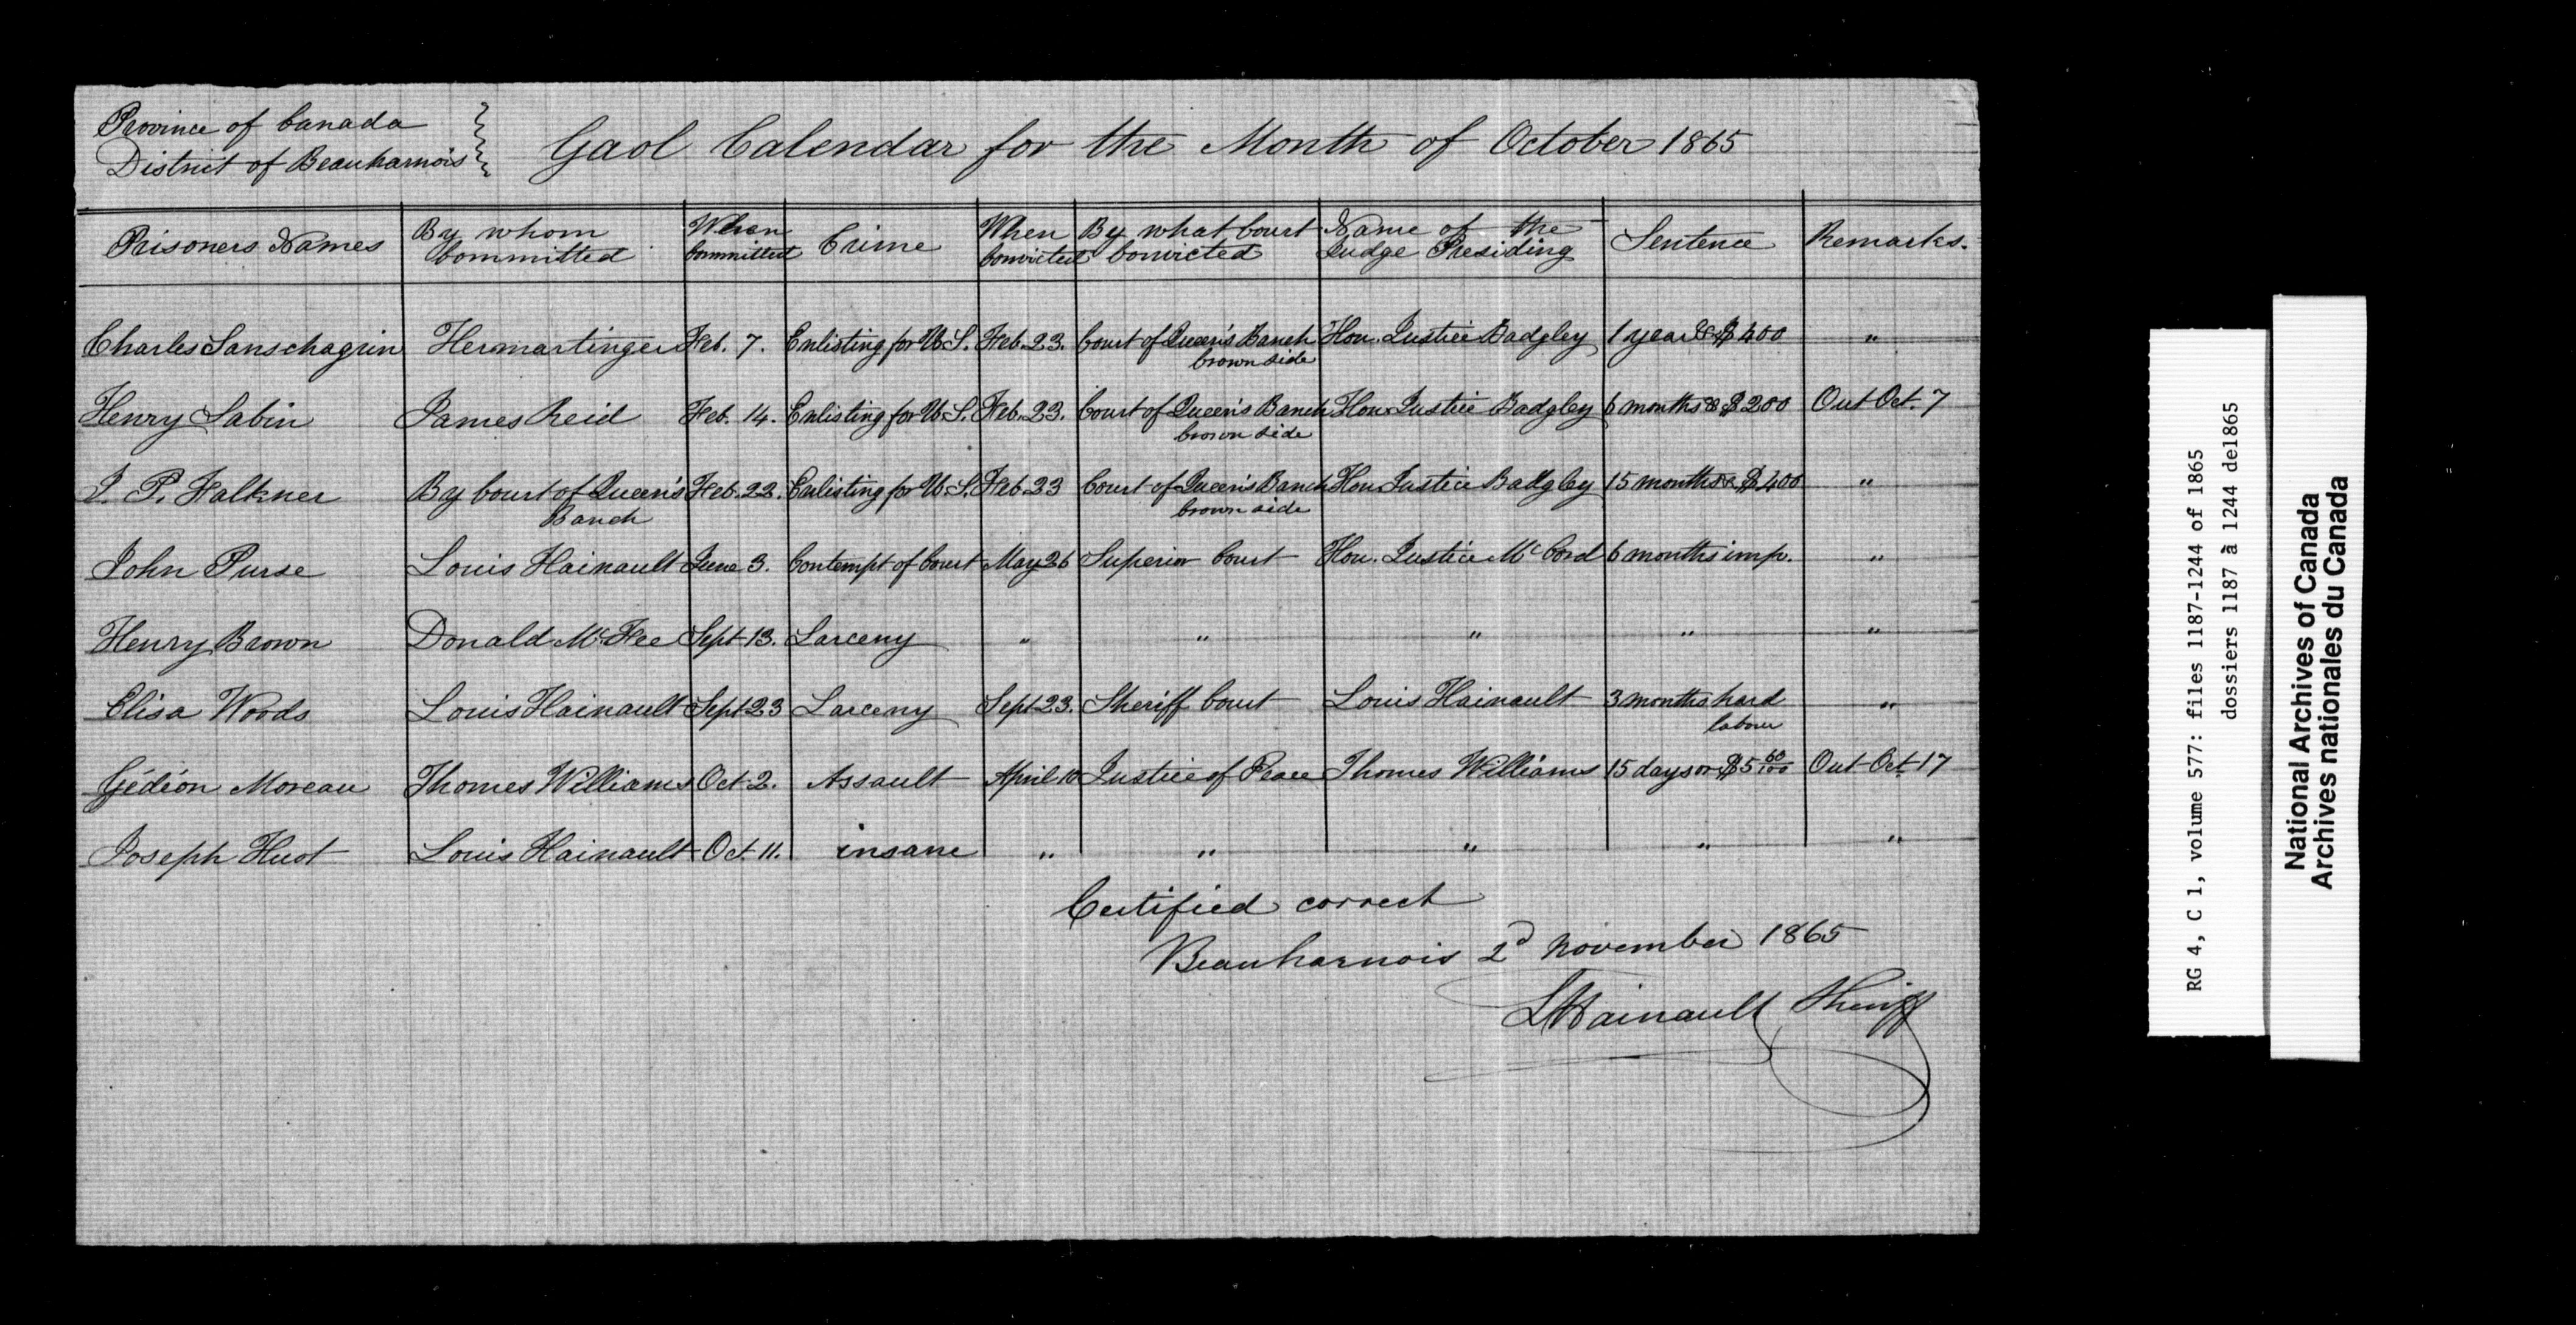 Province of Canada
District of Beauharnois
Gaol Calendar for the Month of October 1865
Prisoners Names | By whom Committed | When Committed | Crime | When Convicted | By what Court Convicted | Name of the Judge Presiding | Sentence | Remarks.
Charles Sanschagrin | Hermartinger | Feb. 7. | Enlisting for U.S. | Feb. 23. | Court of Queen's Banch Crown side | Hon. Justice Badgley | 1 year & $400 | "
Henry Sabin | James Reid | Feb. 14. | Enlisting for U.S. | Feb. 23. | Court of Queen's Banch Crown side | Hon. Justice Badgley | 6 months & $200 | Out Oct. 7
J. P. Falkner | By Court of Queen's Banch | Feb. 22. | Enlisting for U.S. | Feb. 23 | Court of Queen's Banch Crown side | Hon Justice Badgley | 15 months & $400 | "
John Purse | Louis Hainault | June 3. | Contempt of Court | May 26 | Superior Court | Hon. Justice McCord | 6 months imp. | "
Henry Brown | Donald McFee | Sept 13. | Larceny | " | " | " | " | "
Elisa Woods | Louis Hainault | Sept 23 | Larceny | Sept 23. | Sheriff Court | Louis Hainault | 3 months hard labour | "
Gédéon Moreau | Thomes Williams | Oct 2. | Assault | April 10 | Justice of Peace | Thomes Williams | 15 days or $5 60/100 | Out Oct. 17
Joseph Huot | Louis Hainault | Oct. 11. | insane | " | " | " | " | "
Certified correct
Beauharnois 2d November 1865
LHainault Sheriff
RG 4, C 1, volume 577: files 1187-1244 of 1865
dossiers 1187 à 1244 de1865
National Archives of Canada
Archives nationales du Canada